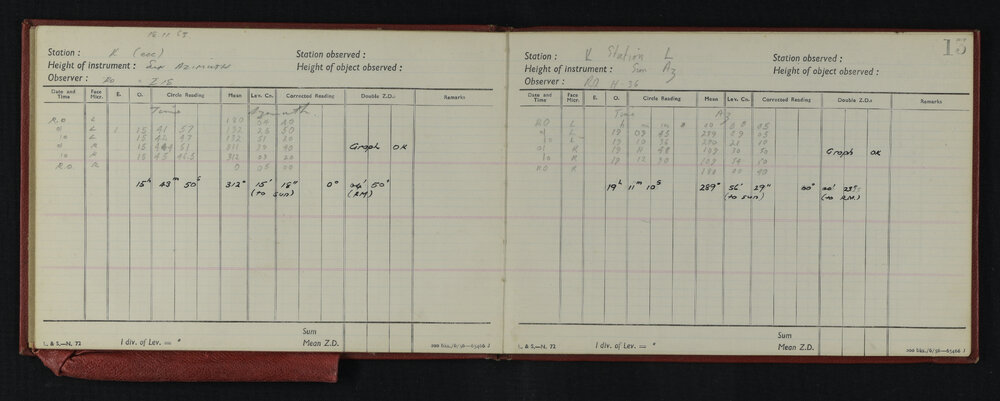 18.11.63
Station : K (ecc)
Station observed :
Height of instrument : Sun Azimuth
Height of object observed :
Observer : RO = Z18
Date and Time Face Micr. E. O. Circle Reading Mean Lev. Cn. Corrected Reading Double Z.D.s Remarks
Time Azimuth
R.O L 180 04 40
L 1 15 41 57 132 25 50
L 15 42 47 132 51 20
R 15 44 51 311 30
R 15 45 46.5 312 03 20
Graph OK
R.O R 0 05 00
15h 43m 50s 312° 15' 18" 0° 04' 50"
(to sun) (RM)
Sum
L. & S.—N. 72 1 div. of Lev. = " Mean Z.D. 200 bks./6/56—65466 J
15
Station : K Station L
Station observed :
Height of instrument : Sun Az
Height of object observed :
Observer : RO H 36
Date and Time Face Micr. E. O. Circle Reading Mean Lev. Cn. Corrected Reading Double Z.D.s Remarks
Time Az
h m s
RO L 00 05
L 19 09 45 289 29 05
L 19 10 36 290 21 10
R 19 11 48 109 30 50
R 19 12 30 109 54 50
Graph OK
RO R 180 00 40
19h 11m 10s 289° 56' 29" 00° 00' 23"
(to sun) (to RM)
Sum
L. & S.—N. 72 1 div. of Lev. = " Mean Z.D. 200 bks./6/56—65466 J